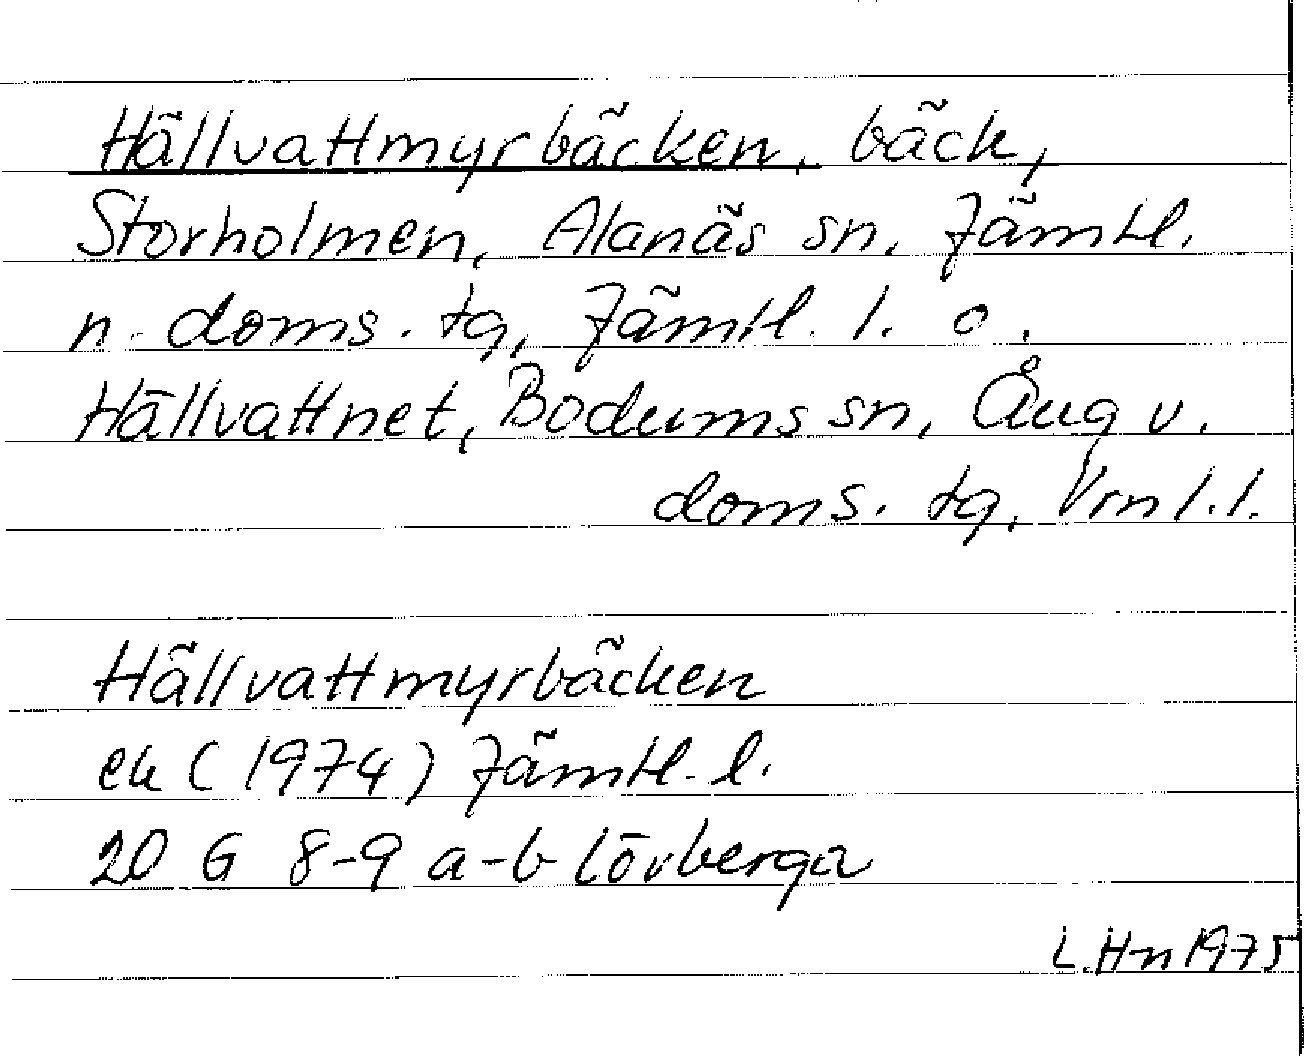 Hällvattmyrbäcken, bäck,
Storholmen, Alanäs sn, Jämtl.
n. doms. tg, Jämtl. l. o.
Hällvattnet, Bodums sn, Ång v.
doms. tg, Vrnl.l.
Hällvattmyrbäcken
ek (1974) Jämtl. l.
20 G 8-9 a-b Lövberga
L.Hn 1975